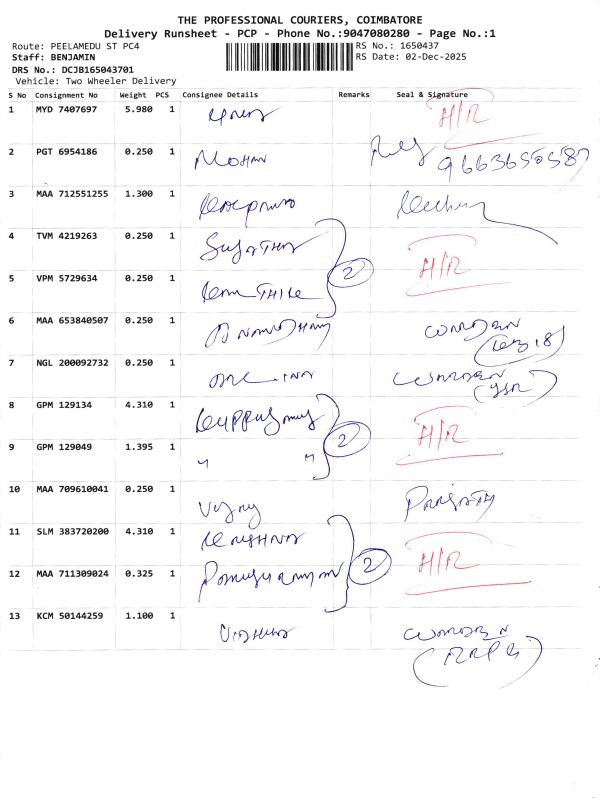 THE PROFESSIONAL COURIERS, COIMBATORE
Delivery Runsheet - PCP - Phone No.:9047080280 - Page No.:1
Route: PEELAMEDU ST PC4 RS No.: 1650437
Staff: BENJAMIN RS Date: 02-Dec-2025
DRS No.: DCJB165043701
Vehicle: Two Wheeler Delivery
S No Consignment No Weight PCS Consignee Details Remarks Seal & Signature
1 MYD 7407697 5.980 1 H/R
2 PGT 6954186 0.250 1 MOHAN
3 MAA 712551255 1.300 1
4 TVM 4219263 0.250 1 SUJATHA 2 H/R
5 VPM 5729634 0.250 1
6 MAA 653840507 0.250 1 WARDEN
7 NGL 200092732 0.250 1 WARDEN
8 GPM 129134 4.310 1 2 H/R
9 GPM 129049 1.395 1 " "
10 MAA 709610041 0.250 1 VIJAY
11 SLM 383720200 4.310 1 KRISHNA 2 H/R
12 MAA 711309024 0.325 1
13 KCM 50144259 1.100 1 WARDEN